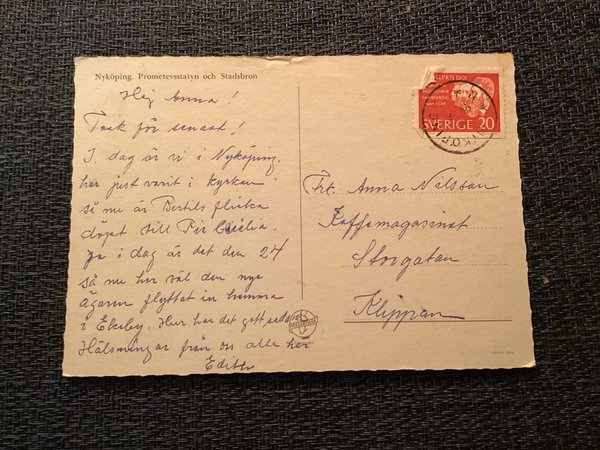 Nyköping. Prometevsstatyn och Stadsbron
Hej Anna!
Tack för senast!
I dag är vi i Nyköping,
har just varit i kyrkan
så nu är Bertils flicka
döpt till Cecilia.
Ja i dag är det den 24
så nu har väl den nye
ägaren flyttat in hemma
i Ekeby. Hur har det gått
Hälsningar från oss alla här
Edith
Frk. Anna Nilsson
Kaffemagasinet
Storgatan
Klippan
NOBELPRIS 1901
SVERIGE 20
NYKÖPING